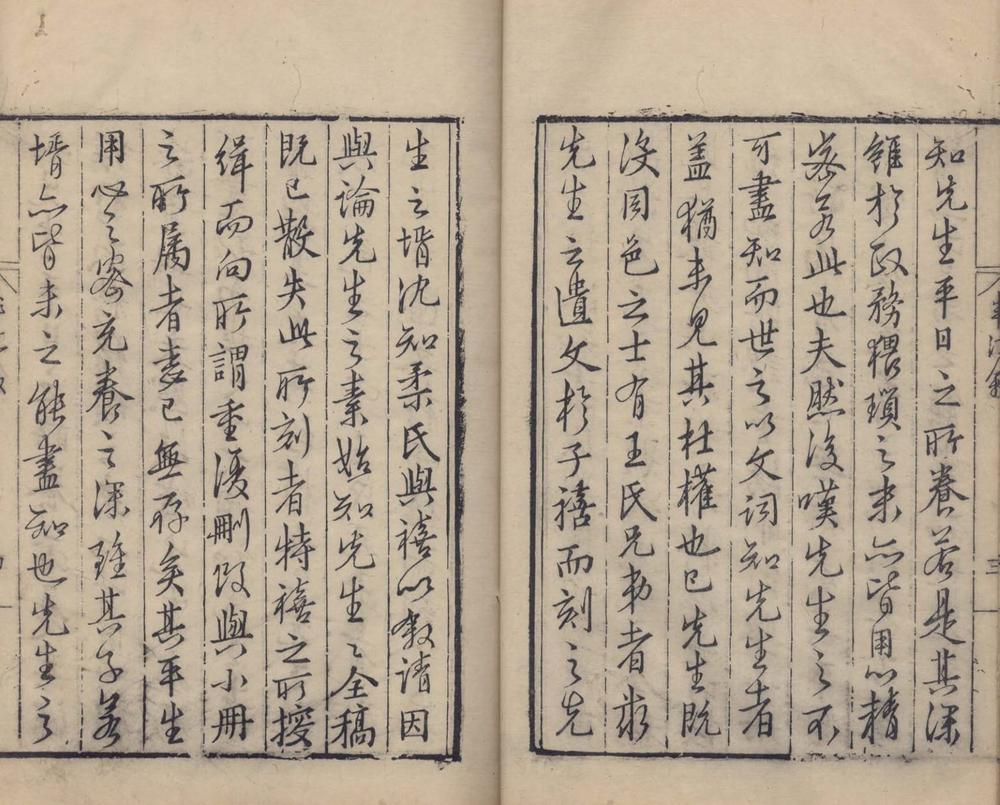 知先生平日之所養若是其深
雖於政務猥瑣之末亦皆用心精
密若此也夫然後嘆先生之不
可盡知而世之以文詞知先生者
盖猶未見其杜權也已先生既
沒同邑之士有王氏兄弟者求
先生之遺文於子禧而刻之先
生之壻沈知柔氏與禧以叙請因
與論先生之素始知先生之全稿
既已散失此所刻者特禧之所掇
緝而向所謂重復刪改與小冊
之所属者蓋已無存矣其平生
用心之密充養之深雖其子若
壻亦皆未之能盡知也先生之
三